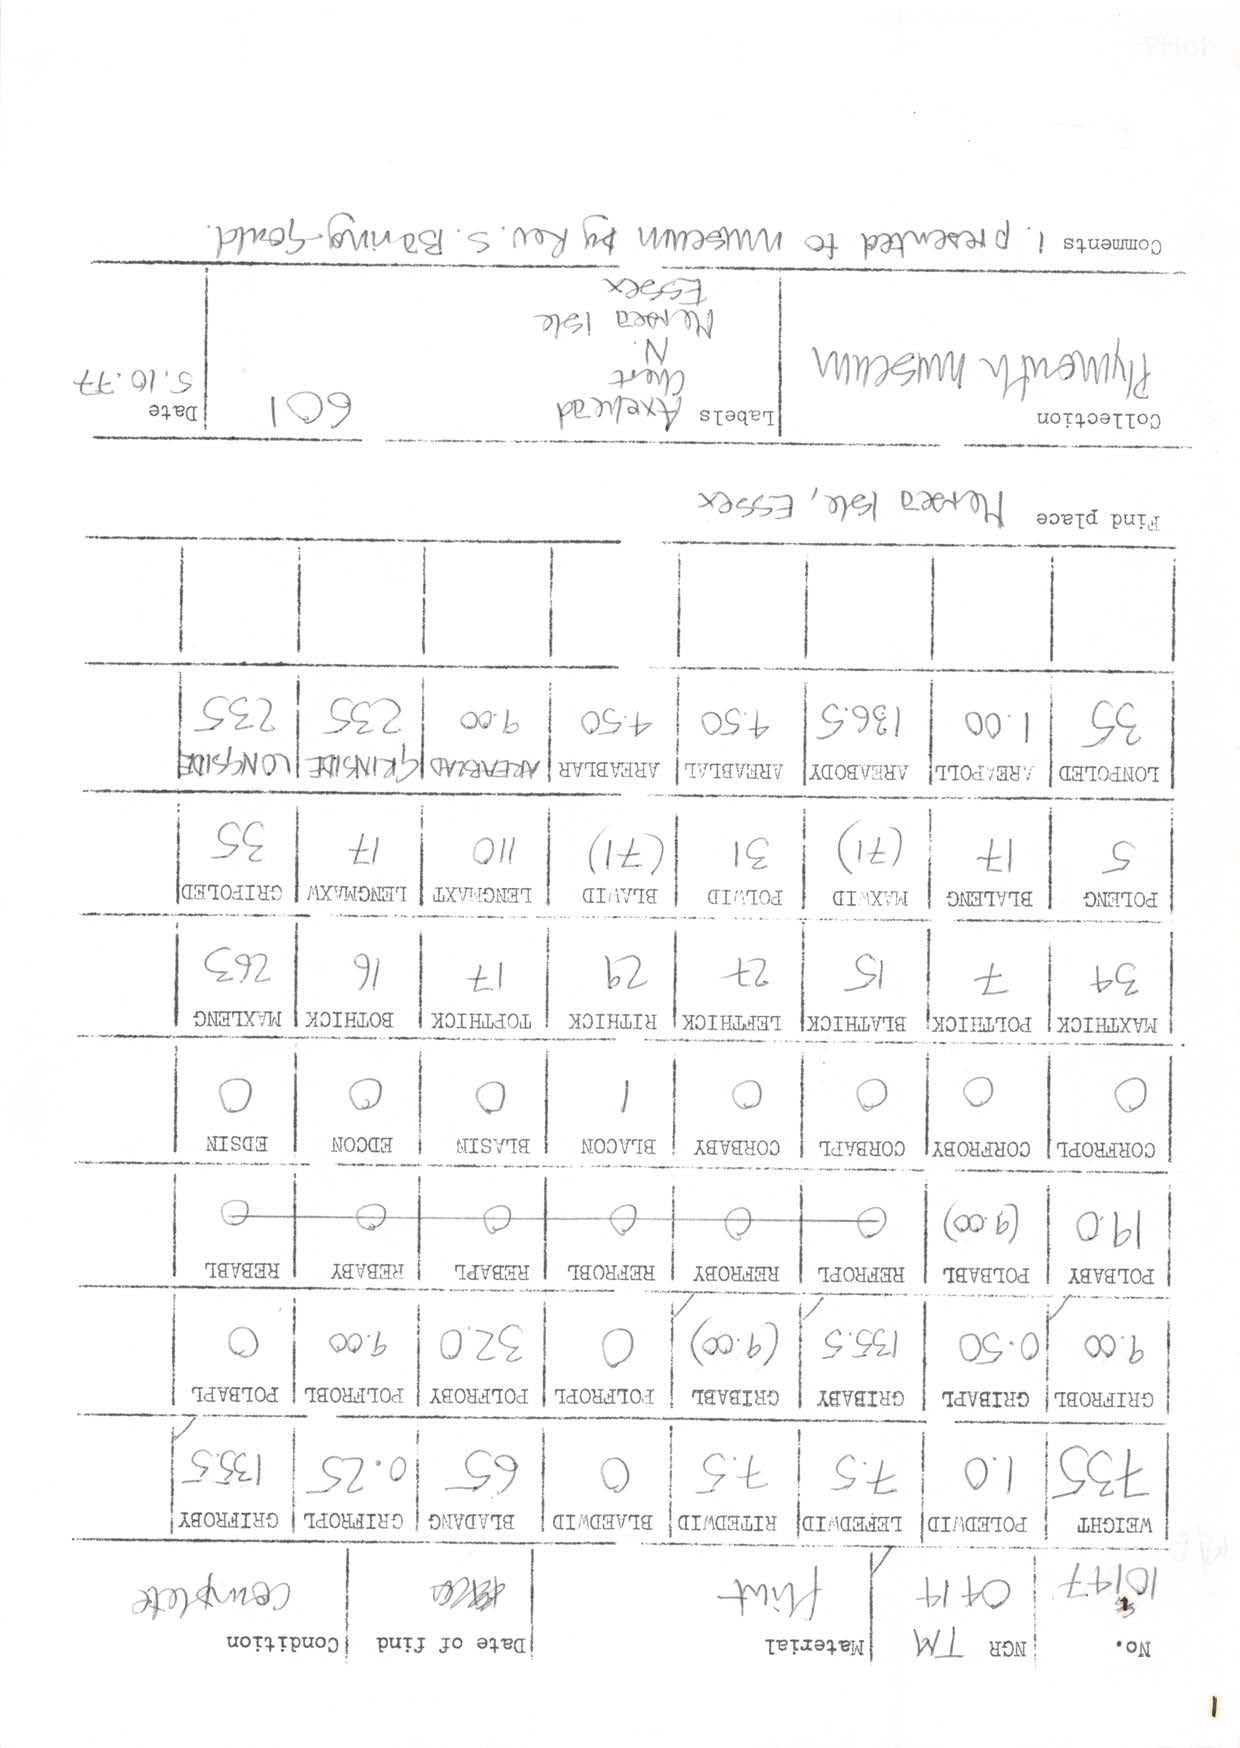 No. | NGR TM | Material | Date of find | Condition
10147 | 0414 | flint | complete
WEIGHT | POLEDWID | LEFEDWID | RITEDWID | BLAEDWID | BLADANG | GRIFROPL | GRIFROBY
735 | 1.0 | 7.5 | 7.5 | 0 | 65 | 0.25 | 135.5
GRIFROBL | GRIBAPL | GRIBABY | GRIBABL | POLFROPL | POLFROBY | POLFROBL | POLBAPL
9.00 | 0.50 | 135.5 | (9.00) | 0 | 32.0 | 9.00 | 0
POLBABY | POLBABL | REFROPL | REFROBY | REFROBL | REBAPL | REBABY | REBABL
19.0 | (9.00) | 0 | 0 | 0 | 0 | 0 | 0
CORFROPL | CORFROBY | CORBAPL | CORBABY | BLACON | BLASIN | EDCON | EDSIN
0 | 0 | 0 | 0 | 1 | 0 | 0 | 0
MAXTHICK | POLTHICK | BLATHICK | LEFTHICK | RITHICK | TOPTHICK | BOTHICK | MAXLENG
34 | 7 | 15 | 27 | 29 | 17 | 16 | 263
POLENG | BLALENG | MAXWID | POLWID | BLAWID | LENGMAXT | LENGMAXW | GRIPOLED
5 | 17 | (71) | 31 | (71) | 110 | 17 | 35
LONPOLED | AREAPOLL | AREABODY | AREABLAL | AREABLAR | AREABLAD | GRINSIDE | LONGSIDE
35 | 1.00 | 136.5 | 4.50 | 4.50 | 9.00 | 235 | 235
Find place Mersea Isle, Essex
Collection | Labels Axehead | 601 | Date
Plymouth museum | Chert | 5.10.77
N.
Mersea Isle
Essex
Comments 1. presented to museum by Rev. S. Baring-Gould.
1